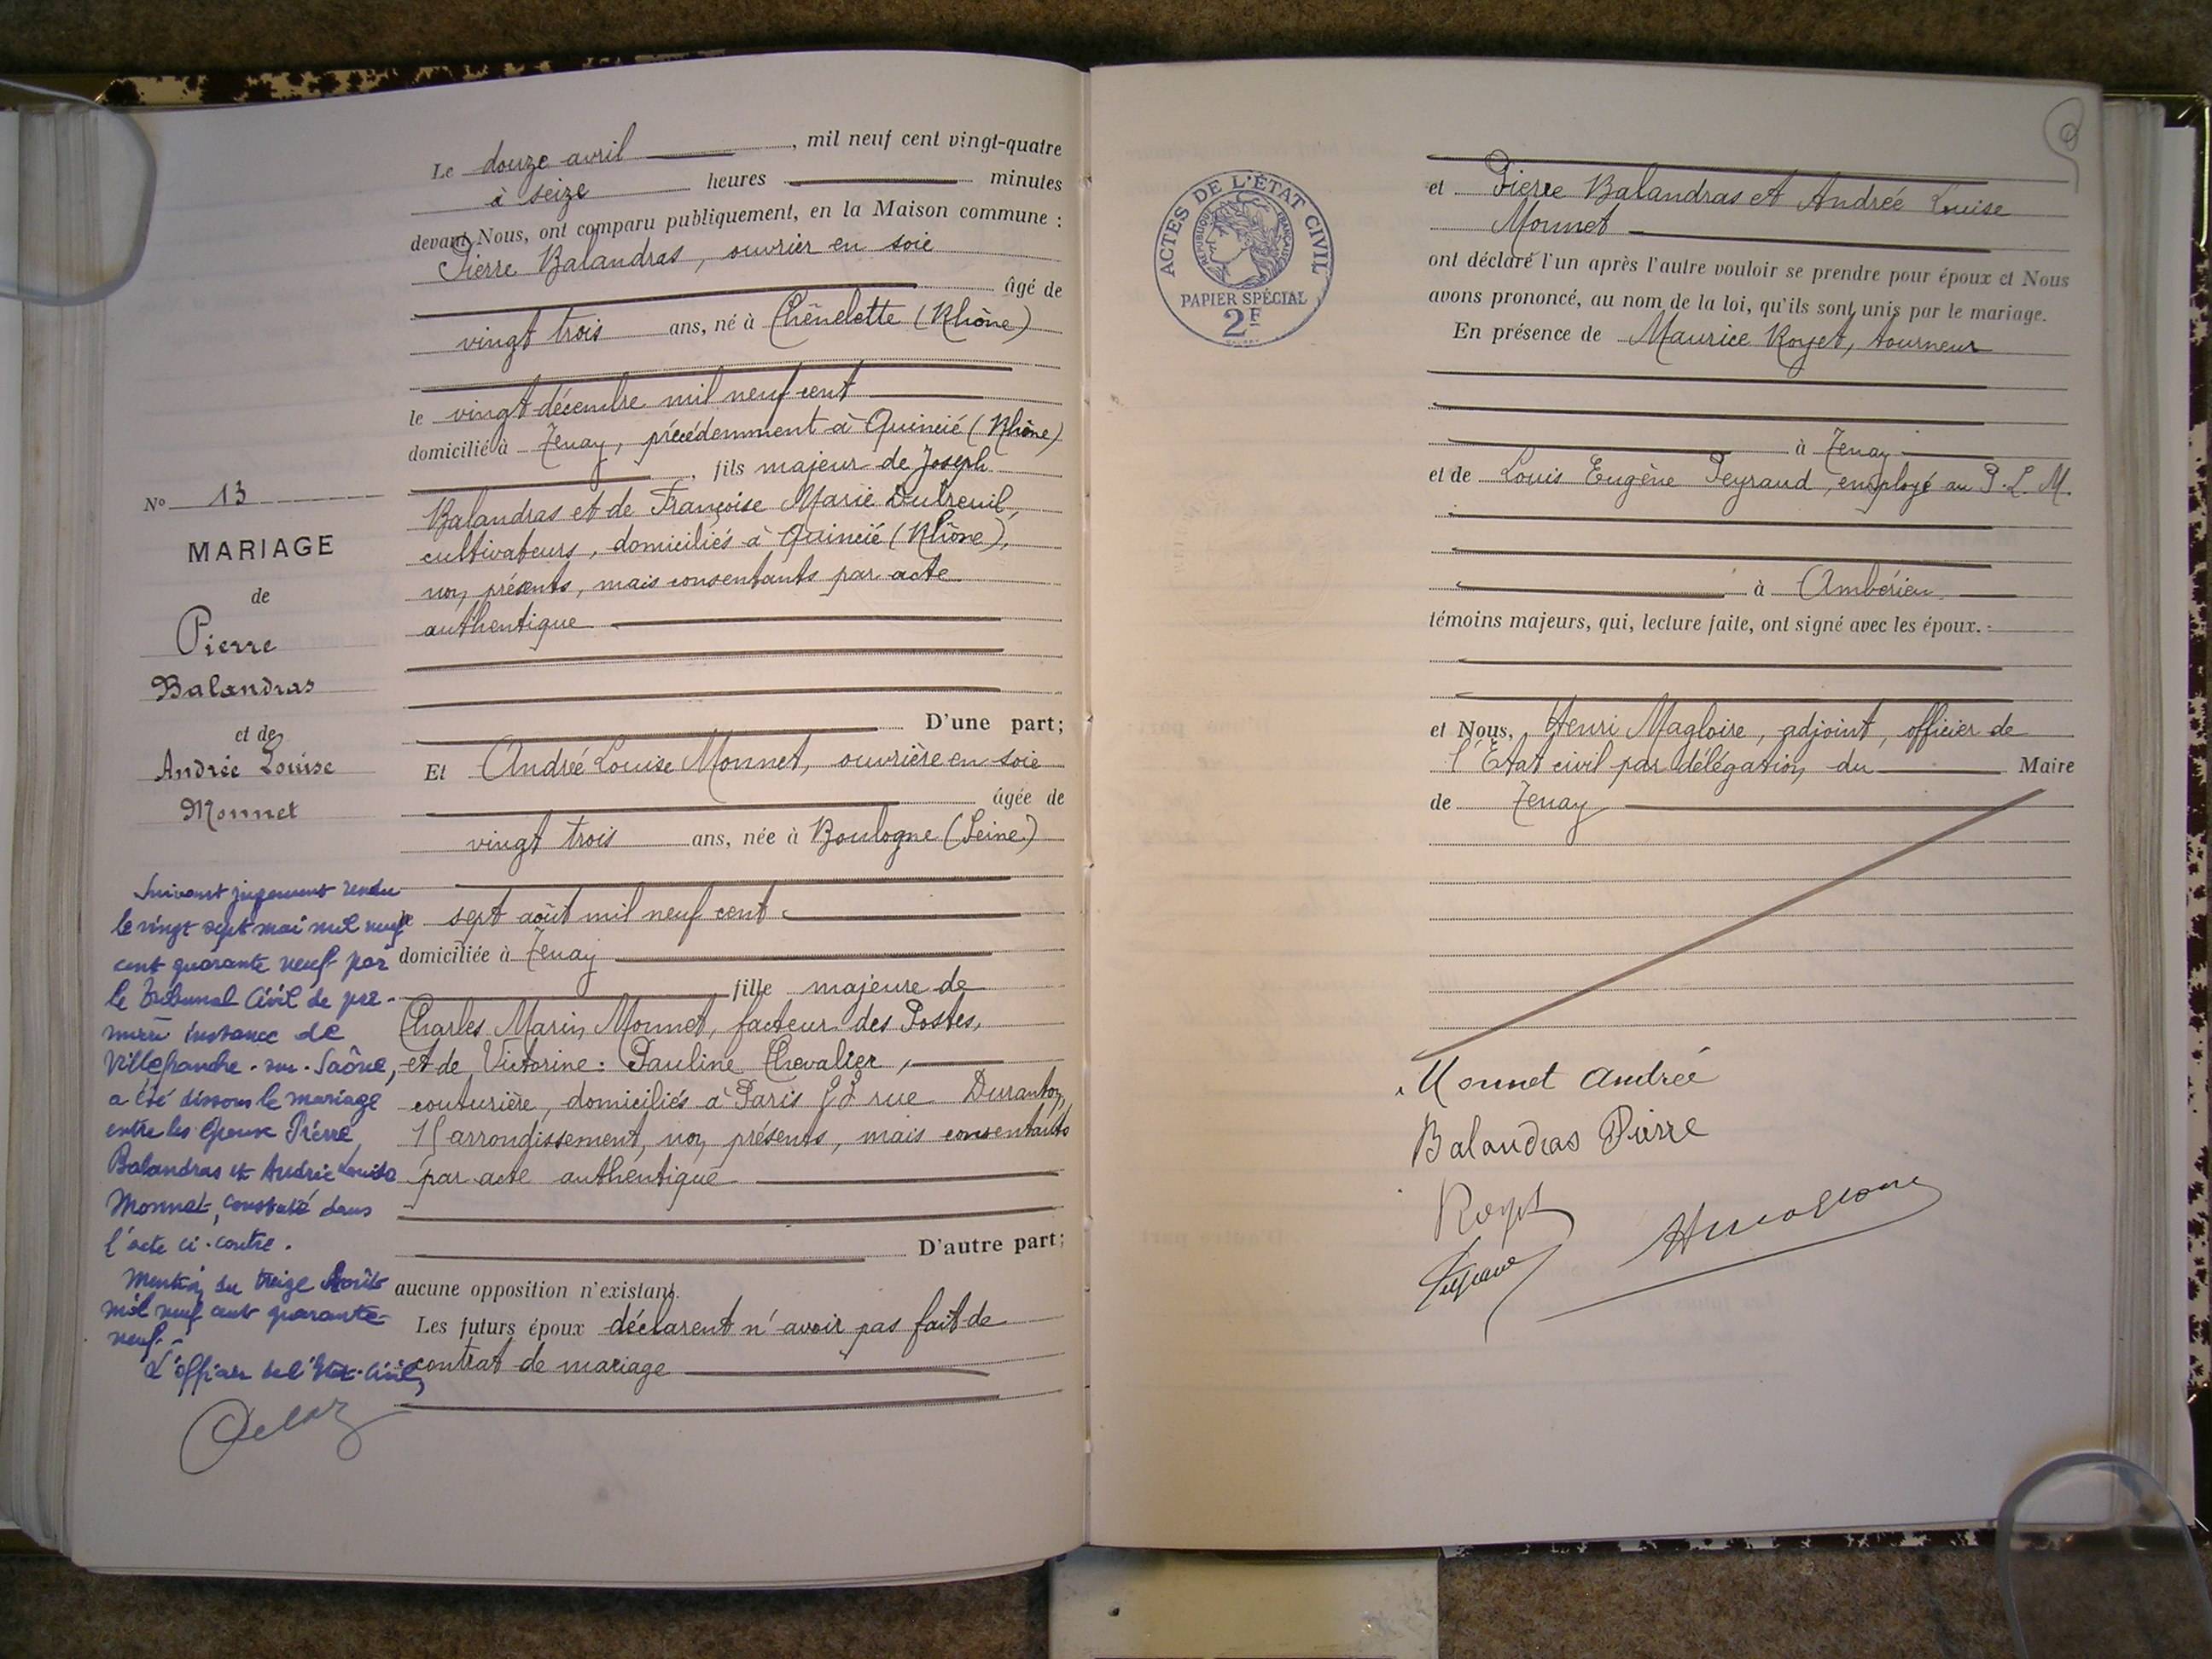 Le douze avril, mil neuf cent vingt-quatre
à seize heures minutes
devant Nous, ont comparu publiquement, en la Maison commune :
Pierre Balandras, ouvrier en soie
âgé de
vingt trois ans, né à Chênelette (Rhône)
le vingt décembre mil neuf cent
domicilié à Tenay, précédemment à Quincié (Rhône)
, fils majeur de Joseph
Balandras et de Françoise Marie Dutreuil,
cultivateurs, domiciliés à Quincié (Rhône),
non présents, mais consentants par acte
authentique
D'une part;
Et Andrée Louise Monnet, ouvrière en soie
âgée de
vingt trois ans, née à Boulogne (Seine)
le sept août mil neuf cent
domiciliée à Tenay
fille majeure de
Charles Marin Monnet, facteur des Postes,
et de Victorine Pauline Chevalier,
couturière, domiciliés à Paris rue Duranton,
15 arrondissement, non présents, mais consentants
par acte authentique
D'autre part;
aucune opposition n'existant.
Les futurs époux déclarent n'avoir pas fait de
contrat de mariage
No 13
MARIAGE
de
Pierre
Balandras
et de
Andrée Louise
Monnet
Suivant jugement rendu
le vingt sept mai mil neuf
cent quarante neuf par
le Tribunal Civil de pre-
mière instance de
Villefranche-sur-Saône,
a été dissous le mariage
entre les époux Pierre
Balandras et Andrée Louise
Monnet, constaté dans
l'acte ci-contre.
Mention du treize Août
mil neuf cent quarante-
neuf.
L'officier de l'Etat-Civil,
ACTES DE L'ÉTAT CIVIL
RÉPUBLIQUE FRANÇAISE
PAPIER SPÉCIAL
2F
et Pierre Balandras et Andrée Louise
Monnet
ont déclaré l'un après l'autre vouloir se prendre pour époux et Nous
avons prononcé, au nom de la loi, qu'ils sont unis par le mariage.
En présence de Maurice Royet, tourneur
à Tenay
et de Louis Eugène Peyraud, employé au P.L.M.
à Ambérieu
témoins majeurs, qui, lecture faite, ont signé avec les époux.
et Nous, Henri Magloire, adjoint, officier de
l'Etat civil par délégation du Maire
de Tenay
Monnet Andrée
Balandras Pierre
Royet